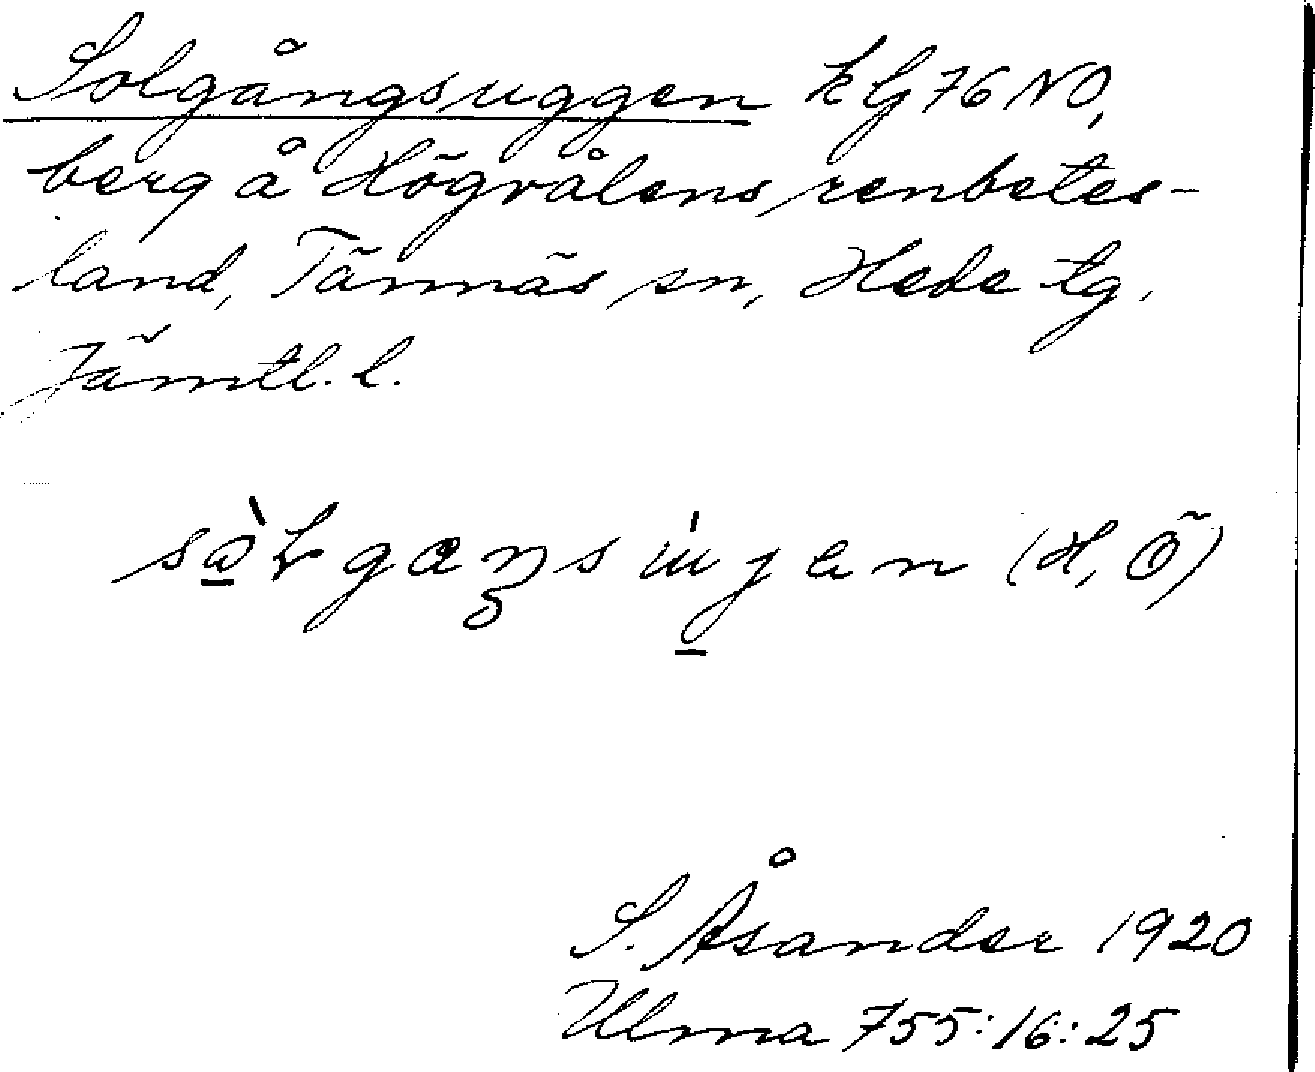 Solgångsuggen k G 76 NO,
berg å Högvålens renbetes-
land, Tännäs sn, Hede tg.
Jämtl. l.
(H, Ö)
S. Åsander 1920
Ulma 755:16:25